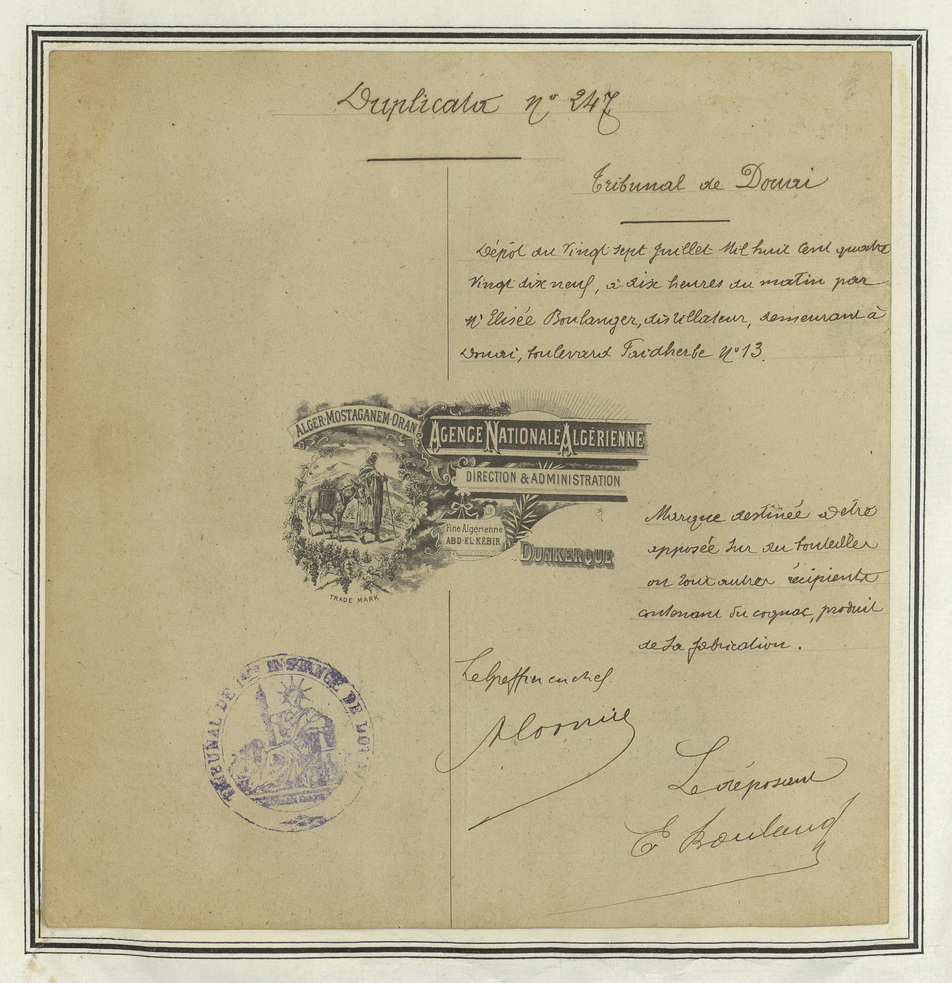 Duplicata N° 247
Tribunal de Douai
Dépôt du Vingt sept Juillet Mil huit Cent quatre
Vingt dix neuf, à dix heures du matin par
Mr Elisée Boulanger, distillateur, demeurant à
Douai, boulevard Faidherbe N° 13.
ALGER-MOSTAGANEM-ORAN
AGENCE NATIONALE ALGÉRIENNE
DIRECTION & ADMINISTRATION
Fine Algérienne
ABD-EL-KÉBIR
DUNKERQUE
TRADE MARK
Marque destinée à être
apposée sur des bouteilles
ou tout autres récipients
contenant du cognac, produit
de sa fabrication.
Le Greffier en chef
TRIBUNAL DE 1ère INSTANCE DE DOUAI
Le déposant